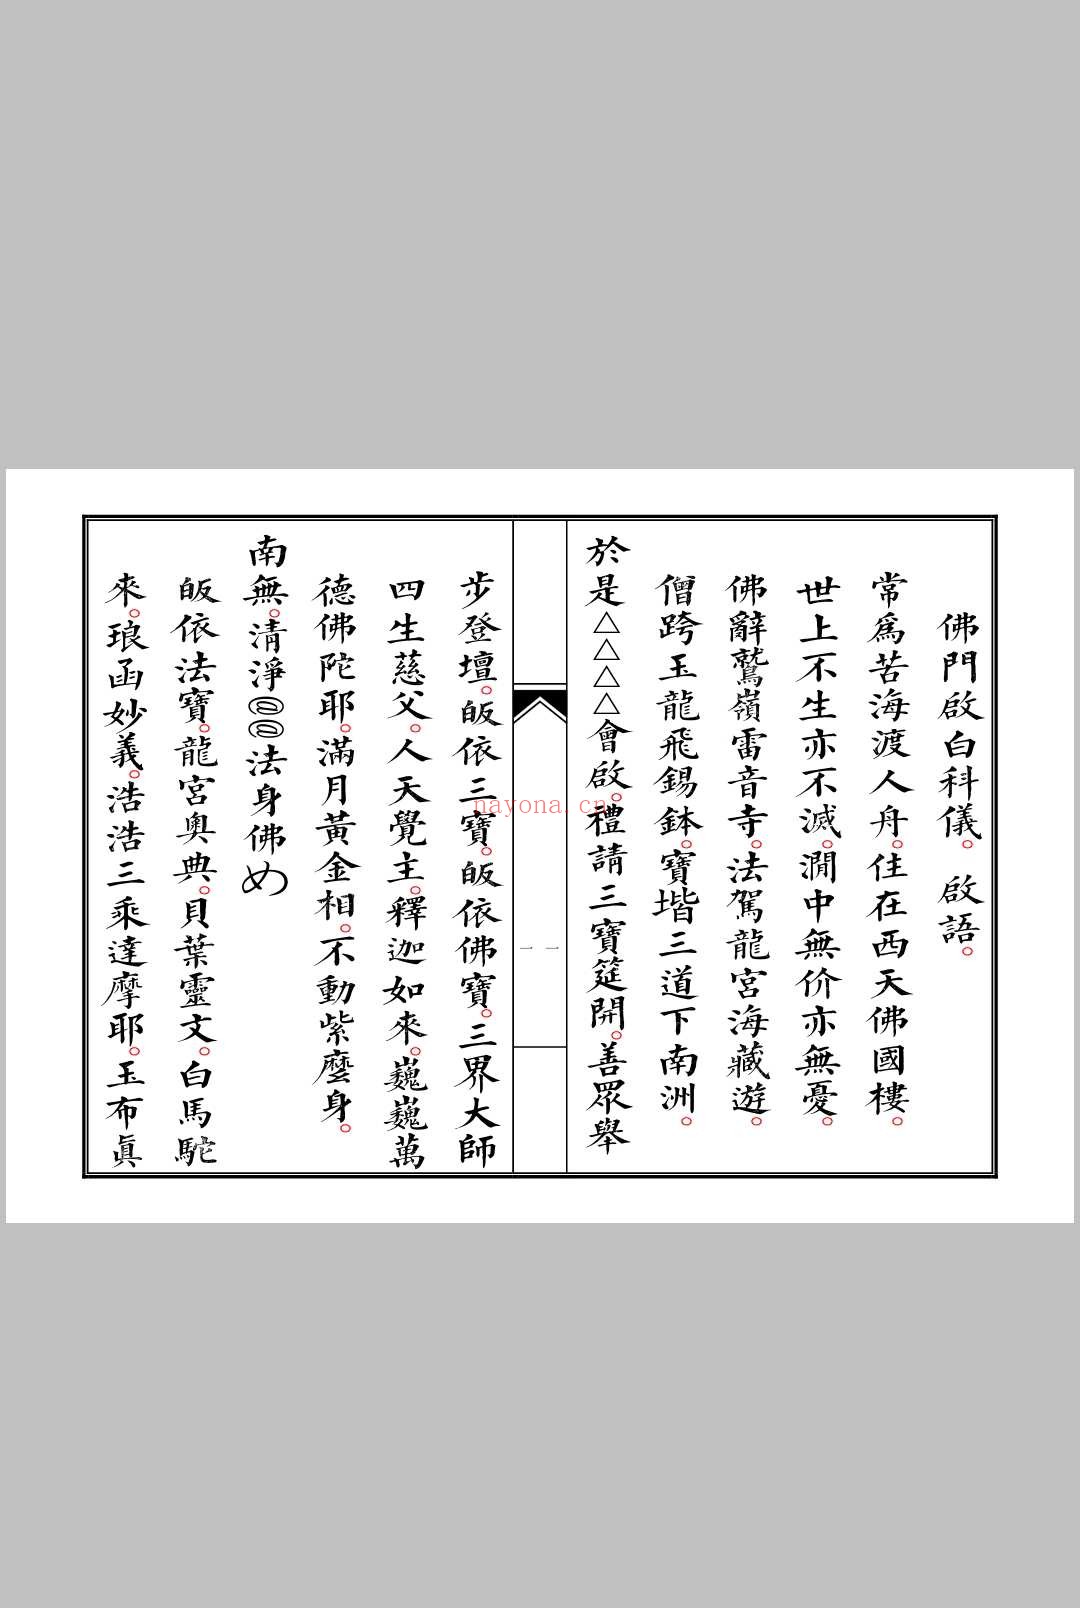 佛門啟白科儀。　啟語。
常為苦海渡人舟。住在西天佛國樓。
世上不生亦不滅。澗中無价亦無憂。
佛辭鷲嶺雷音寺。法駕龍宮海藏遊。
僧跨玉龍飛錫鉢。寶堦三道下南洲。
於是△△△△會啟。禮請三寶筵開。善眾舉
一一
步登壇。皈依三寶。皈依佛寶。三界大師
四生慈父。人天覺主。釋迦如來。巍巍萬
德佛陀耶。滿月黃金相。不動紫麼身。
南無。清淨@@法身佛め
皈依法寶。龍宮奧典。貝葉靈文。白馬駝
來。琅函妙義。浩浩三乘達摩耶。玉布真
nayona.cn